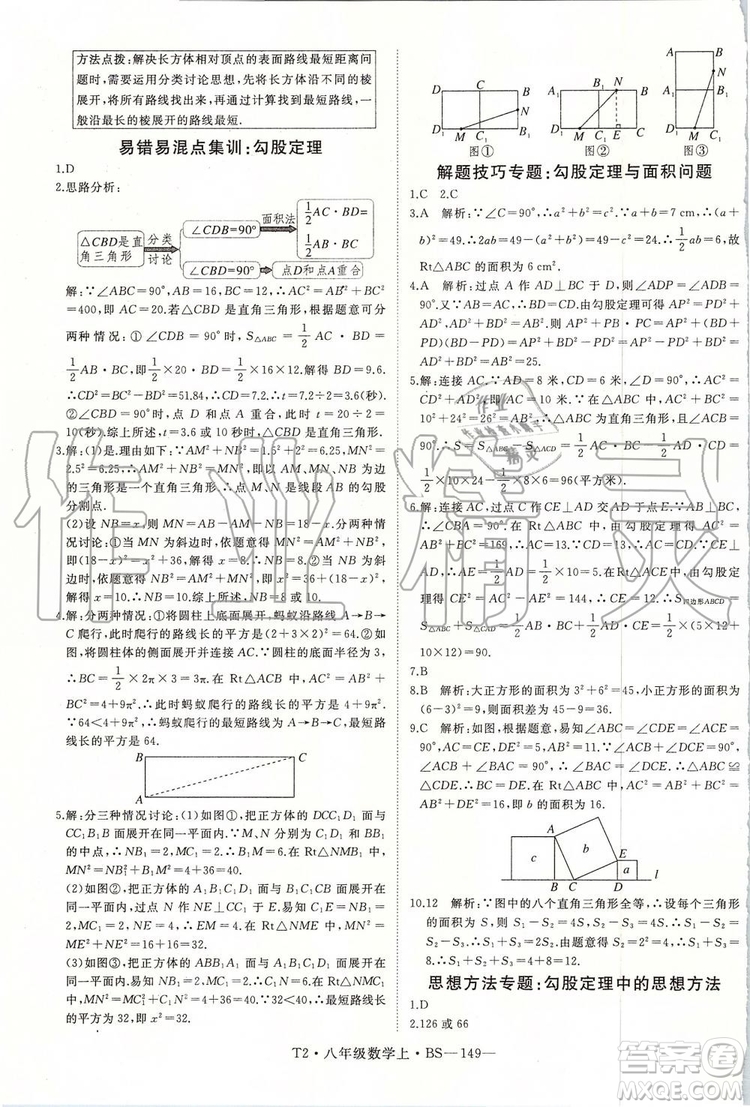 方法点拨:解决长方体相对顶点的表面路线最短距离问
题时,需要运用分类讨论思想,先将长方体沿不同的棱
展开,将所有路线找出来,再通过计算找到最短路线,一
般沿最长的棱展开的路线最短.
易错易混点集训:勾股定理
1.D
2.思路分析:
△CBD是直
角三角形
分类
讨论
∠CDB=90°
面积法
1/2 AC·BD=
1/2 AB·BC
∠CBD=90°
点D和点A重合
解:∵∠ABC=90°,AB=16,BC=12,∴AC²=AB²+BC²
=400,即AC=20.若△CBD是直角三角形,根据题意可分
两种情况:①∠CDB=90°时,S△ABC=1/2 AC·BD=
1/2 AB·BC,即1/2×20·BD=1/2×16×12,解得BD=9.6.
∴CD²=BC²-BD²=51.84,CD=7.2,t=7.2÷2=3.6(秒).
②∠CBD=90°时,点D和点A重合,t=20÷2=
10(秒).综上所述,t=3.6或10秒时,△CBD是直角三角形.
3.解:(1)是.理由如下:∵AM²+NB²=1.5²+2²=6.25,MN²=
2.5²=6.25,∴AM²+NB²=MN²,∴以AM、MN、NB为边的三
角形是一个直角三角形,∴点M、N是线段AB的勾股
分割点.
(2)设NB=x,则MN=AB-AM-NB=18-x.分两种情
况讨论:①当MN为最长线段时,依题意得MN²=AM²+
NB²,即(18-x)²=x²+36,解得x=8;②当NB为最长线
段时,依题意得NB²=AM²+MN²,即x²=36+(18-x)²,
解得x=10.综上所述,NB=8或10.
4.解:分两种情况:①将圆柱上底面展开,蚂蚁沿路线A→B→
C爬行,此时爬行的路线长的平方为(2+3×2)²=64.
②如图,将圆柱体的侧面展开,∵圆柱体的底面半径为3,
∴BC=1/2×2π×3=3π.在Rt△ABC中,AC²=AB²+
BC²=4+9π²,即蚂蚁爬行的路线长的平方为4+9π².
∵64<4+9π²,∴蚂蚁爬行的最短路线为A→B→C,最短路
线长的平方是64.
B
C
A
5.解:分三种情况讨论:(1)如图①,把正方体的DCC₁D₁面与
CC₁B₁B面展开在同一平面内.∵M、N分别是C₁D₁和BB₁
的中点,∴NB₁=2,MC₁=2.在Rt△NMB₁中,
MN²=NB₁²+MB₁²=4+36=40.
(2)如图②,把正方体的A₁B₁C₁D₁面与BB₁A₁A面展开在
同一平面内,过点M作ME⊥A₁B₁于E,则NB₁=2,
MC₁=2,NE=4,ME=4,∴在Rt△NME中,MN²=NE²
+ME²=16+16=32.
(3)如图③,把正方体的A₁B₁C₁D₁面与B₁BCC₁面展开在
同一平面内,则NB₁=2,MC₁=2,∴在Rt△MNC₁中,MN²
=NC₁²+MC₁²=36+4=40.∵40>32,∴最短路线长的
平方为32,即x²=32,∴x²的值为32.
D C B
N
D₁ M C₁ B₁
图①
A B N
D M C₁ E
图②
N
D₁ M C₁
图③
解题技巧专题:勾股定理与面积问题
1.C 2.C
3.A 解析:∵∠C=90°,∴a²+b²=c².∵a+b=7 cm,∴(a+
b)²=49,∴2ab=49-(a²+b²)=49-c²=24,∴1/2 ab=6,故
Rt△ABC的面积为6 cm².
4.A 解析:过点A作AD⊥BC于D,则∠ADP=∠ADB=
90°.又∵AB=AC,∴BD=CD,由勾股定理得AP²=PD²+
AD²,AB²=BD²+AD²,∴AP²+PB·PC=AP²+(BD+
PD)(CD-PD)=AP²+(BD+PD)(BD-PD)=AP²+BD²
-PD²=AD²+BD²=AB²=25.
5.解:连接AC.∵AD=8米,CD=6米,∠ADC=90°,∴AC=
10米.∵AB=26米,BC=24米,∴AC²+BC²=
10²+24²=26²=AB²,∴△ACB为直角三角形,∠ACB=
90°,∴S=S△ABC-S△ACD=1/2 AC·BC-1/2 AD·CD=
1/2×10×24-1/2×8×6=96(平方米).
6.解:连接AC,过点C作CE⊥AD交AD于点E.∵AB⊥BC,
∴∠CBA=90°.在Rt△ABC中,由勾股定理得AC²=AB²+
BC²=5²+12²=13²,∴AC=13.∵CD=13,∴AC=CD.
∵CE⊥AD,∴AE=1/2 AD=5.在Rt△ACE中,由勾股
定理得CE²=AC²-AE²=12²,∴CE=12.∴S四边形ABCD=
S△ABC+S△CAD=1/2 AB·BC+1/2 AD·CE=1/2×(5×12+
10×12)=90.
7.B
8.B 解析:大正方形的面积为3²+6²=45,小正方形的面积为
(6-3)²=9,则面积差为45-9=36.
9.C 解析:如图,根据题意,易知∠ABC=∠CDE=∠ACE=
90°,AC=CE,DE²=5,AB²=11,∴∠BAC=∠DCE,∴△ABC≌
△CDE,∴BC=DE.在Rt△ABC中,由勾股定理得AC²=AB²
+BC²=AB²+DE²=16,即b的面积为16.
A
c
b
E
a
B C D
10.12 解析:∵图中的八个直角三角形全等,∴设每个三角形
的面积为S,则S₁-S₂=4S,S₂-S₃=4S,∴S₁-S₂=S₂
-S₃,∴S₁+S₃=2S₂=2×4=8,∴S₁+S₂+S₃=4+
8=12.
思想方法专题:勾股定理中的思想方法
1.D
2.126或66
T2·八年级数学上·BS—149—
作业精灵
答案圈
MXQE.COM